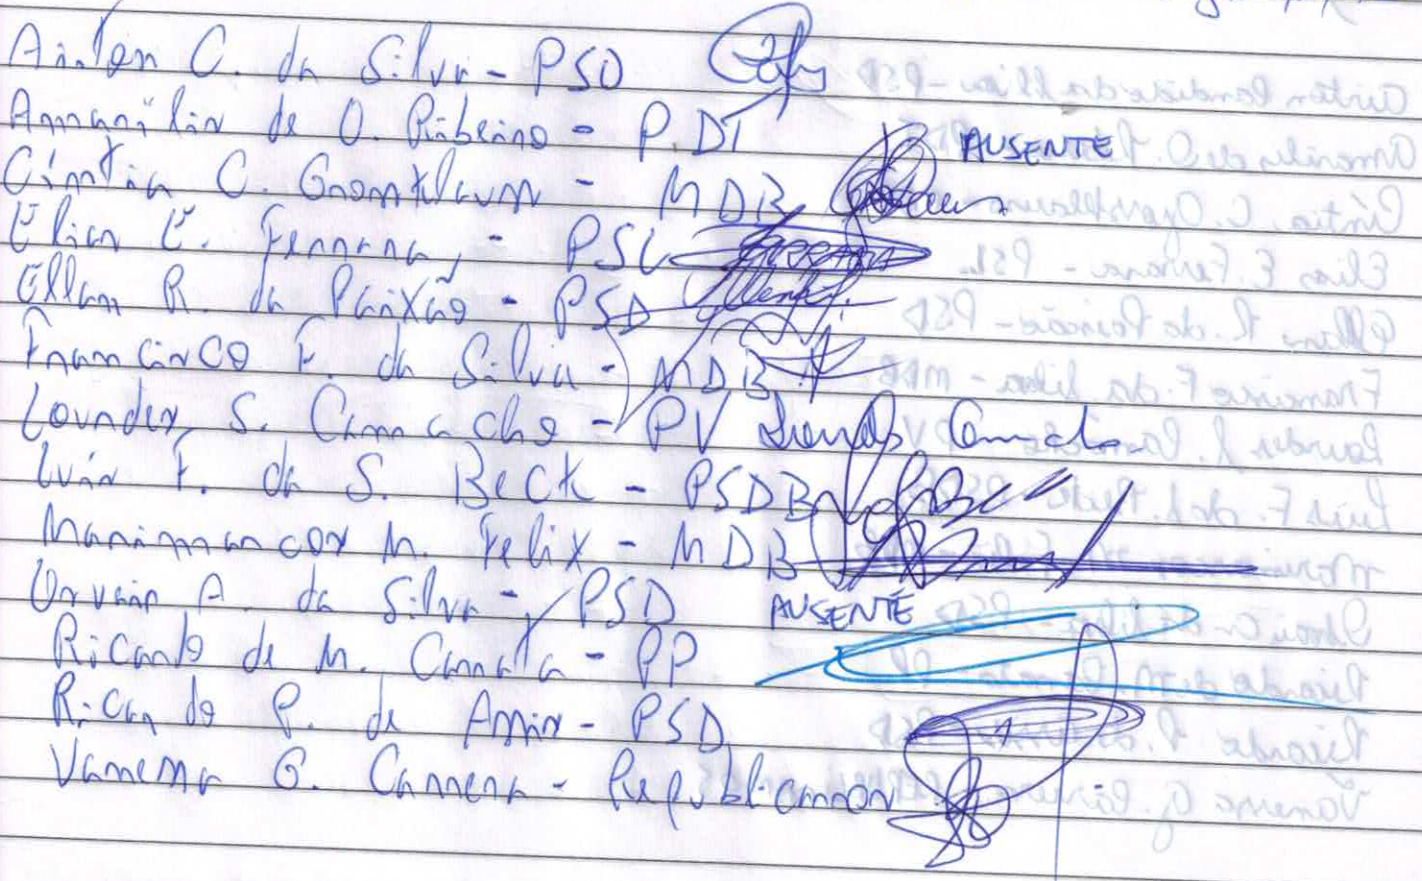 Airton C. da Silva - PSD
Amarilis de O. Ribeiro - P.DT AUSENTE
Cíntia C. Gronstlaun - MDB
Elias E. Ferrara, - PSL
Ellan R. da Paixão - PSD
Francisco F. da Silva - MDB
Lourdes S. Camacho - PV Lourdes Camacho
Luis F. da S. Beck - PSDB
Marimarcos M. Felix - MDB
Osvair A. da Silva - PSD AUSENTE
Ricardo de M. Canata - PP
Ricardo P. de Assis - PSD
Vanessa G. Carrera - Republicanos